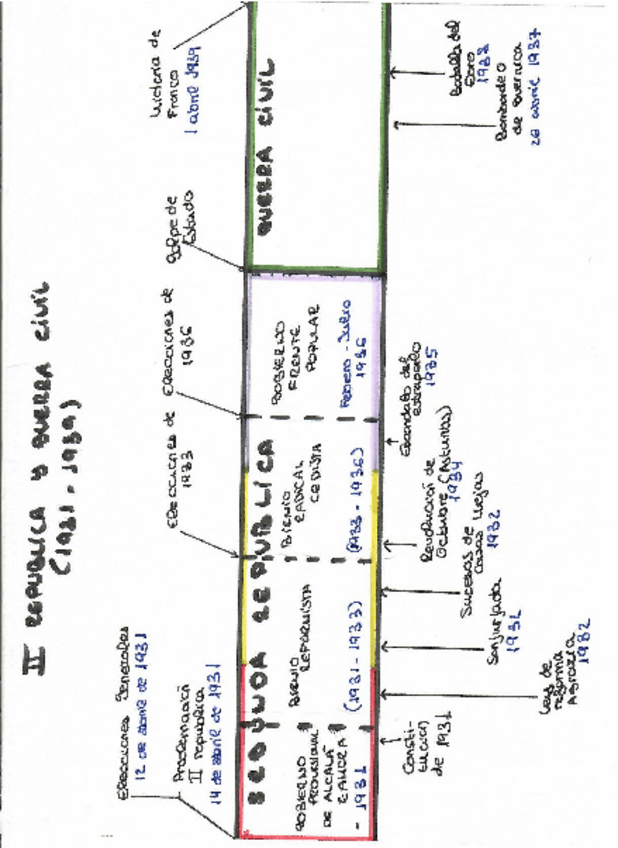 II REPUBLICA Y GUERRA CIVIL
(1931 - 1939)
Elecciones Generales
12 de abril de 1931
Proclamación
II republica
14 de abril de 1931
Elecciones de
1933
Elecciones de
1936
Golpe de
Estado
Victoria de
Franco
1 abril 1939
SEGUNDA REPÚBLICA
GUERRA CIVIL
GOBIERNO
PROVISIONAL
DE ALCALÁ
ZAMORA
- 1931
BIENIO
REFORMISTA
(1931 - 1933)
BIENIO
RADICAL
CEDISTA
(1933 - 1936)
GOBIERNO
FRENTE
POPULAR
Febrero - Julio
1936
Consti-
tucion
de 1931
Ley de
reforma
Agraria
1932
Sanjurjada
1932
Sucesos de
Casas Viejas
1932
Revolución de
Octubre (Asturias)
1934
Escandalo del
estraperlo
1935
Bombardeo
de Guernica
26 abril 1937
Batalla del
Ebro
1938